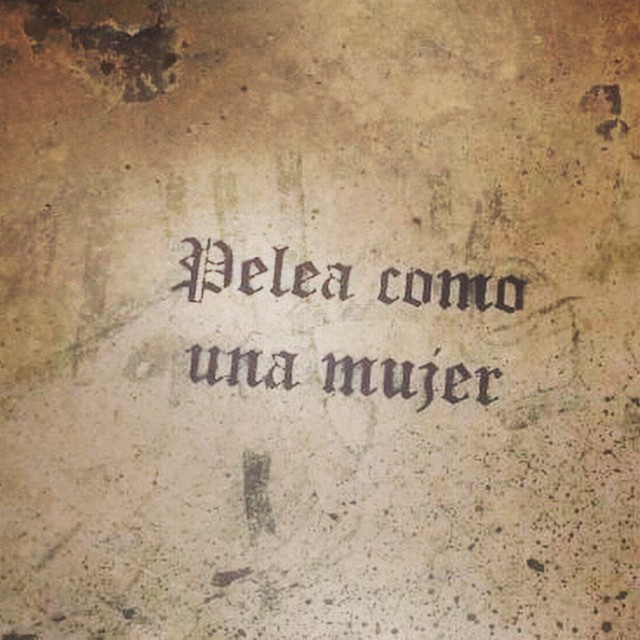 Pelea como
una mujer